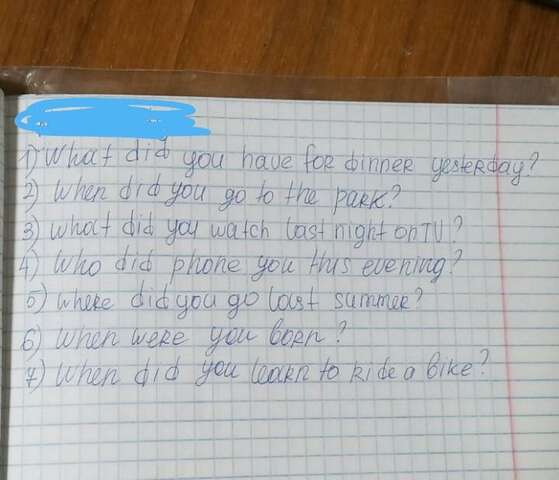 1) What did you have for dinner yesterday?
2) When did you go to the park?
3) What did you watch last night on TV?
4) Who did phone you this evening?
5) Where did you go last summer?
6) When were you born?
7) When did you learn to ride a bike?